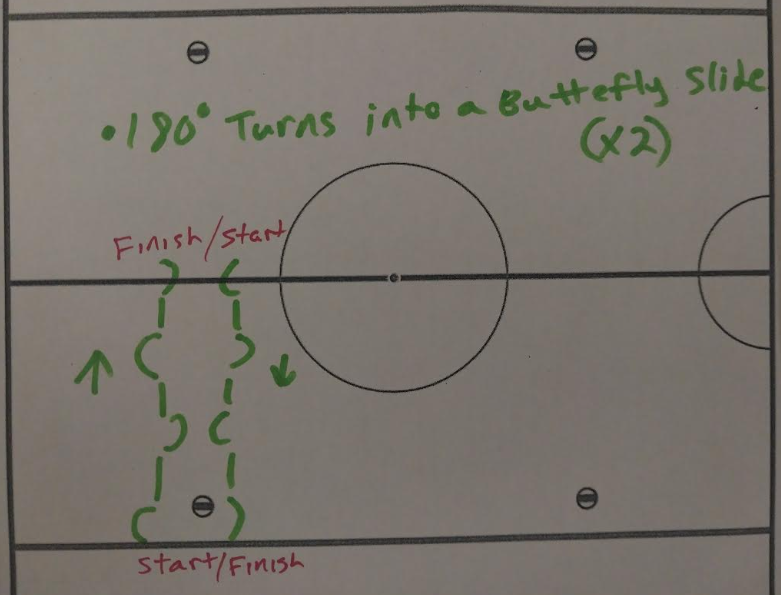 •180° Turns into a Buttefly Slide
(x2)
Finish/start
Start/Finish